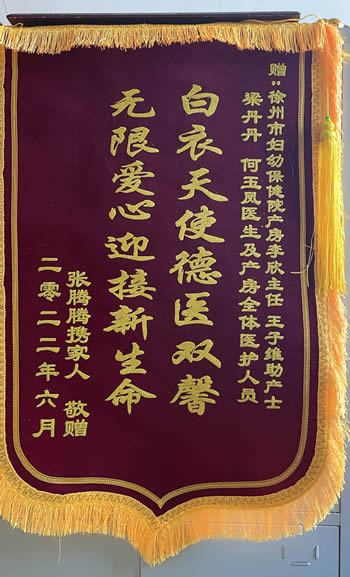 赠：徐州市妇幼保健院产房李欣主任 王子维助产士
梁丹丹 何玉凤医生及产房全体医护人员
白衣天使德医双馨
无限爱心迎接新生命
张腾腾携家人 敬赠
二零二二年六月